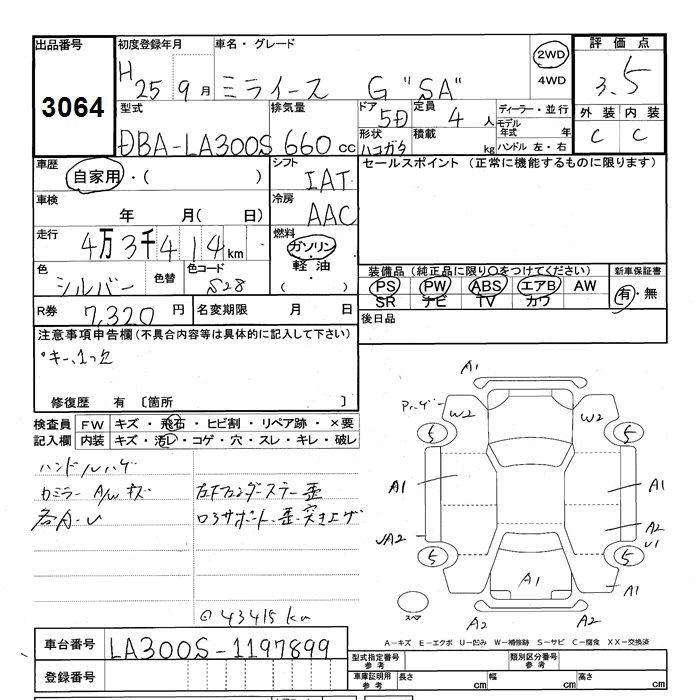 出品番号 初度登録年月 車名・グレード 評価点
3064 H 25 9月 ミライース G "SA" 2WD 4WD 3.5
型式 排気量 ドア 定員 ディーラー・並行 外装 内装
DBA-LA300S 660cc 5D 4人 モデル年式 年 C C
形状 積載 ハンドル 左・右
ハコガタ kg
車歴 シフト セールスポイント (正常に機能するものに限ります)
自家用・( ) IAT
車検 冷房
年 月( 日) AAC
走行 燃料
4万3千414km ガソリン
軽油
( )
色 色替 色コード 装備品(純正品に限り○をつけてください) 新車保証書
シルバー S28 PS PW ABS エアB AW 有・無
SR ナビ TV カワ
R券 7,320円 名変期限 月 日 後日品
注意事項申告欄(不具合内容等は具体的に記入して下さい)
・キー1つ
修復歴 有 〔箇所 〕
検査員 FW キズ・飛石・ヒビ割・リペア跡・×要
記入欄 内装 キズ・汚レ・コゲ・穴・スレ・キレ・破レ
ハンドルハゲ
カミラー A/W キズ 左Fフェンダーステー歪
各A・U ロアサポート歪 突き上ゲ
43415km
A1
W2 W2
5 5
A1 A1
A2
A2 U1
5 5
A1 A1
スペア A2 A2
A-キズ E-エクボ U-凹み W-補修跡 S-サビ C-腐食 XX-交換済
車台番号 LA300S-1197899
型式指定番号 参考 類別区分番号 参考
登録番号 車庫証明用 参考 長さ cm 幅 cm 高さ cm